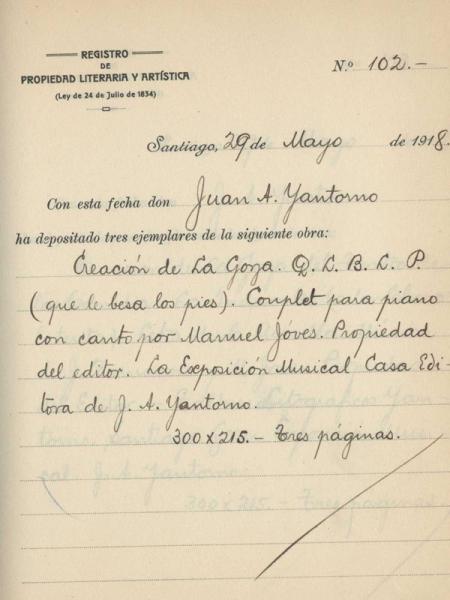 REGISTRO
DE
PROPIEDAD LITERARIA Y ARTÍSTICA
(Ley de 24 de Julio de 1834)
N.o 102.-
Santiago, 29 de Mayo de 1918.
Con esta fecha don Juan A. Yantorno
ha depositado tres ejemplares de la siguiente obra:
Creación de La Goya. Q. L. B. L. P.
(que le besa los pies). Couplet para piano
con canto por Manuel Jóves. Propiedad
del editor. La Exposición Musical Casa Edi-
tora de J. A. Yantorno.
300 x 215.- Tres páginas.